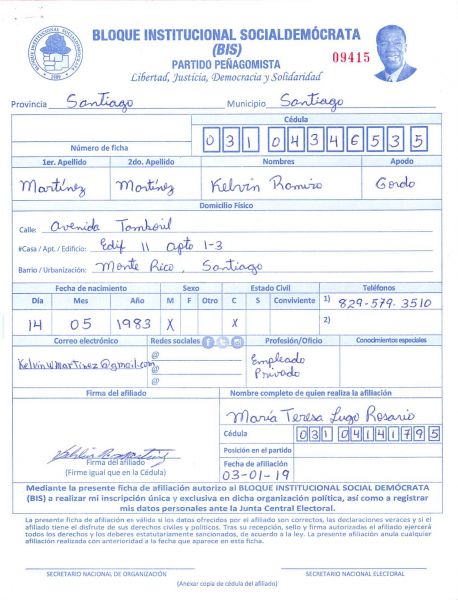 BLOQUE INSTITUCIONAL SOCIALDEMÓCRATA
(BIS)
PARTIDO PEÑAGOMISTA
Libertad, Justicia, Democracia y Solidaridad
09415
BLOQUE INSTITUCIONAL SOCIALDEMOCRATA
Provincia Santiago Municipio Santiago
Cédula
Número de ficha 031 0434653 5
1er. Apellido 2do. Apellido Nombres Apodo
Martínez Martínez Kelvin Ramiro Gordo
Domicilio Físico
Calle: Avenida Tamboril
#Casa / Apt. / Edificio: Edif 11 apto 1-3
Barrio / Urbanización: Monte Rico, Santiago
Fecha de nacimiento Sexo Estado Civil Teléfonos
Día Mes Año M F Otro C S Conviviente 1) 829-579-3510
14 05 1983 X X 2)
Correo electrónico Redes sociales Profesión/Oficio Conocimientos especiales
KelvinWMartinez@gmail.com @ Empleado
@ Privado
@
Firma del afiliado Nombre completo de quien realiza la afiliación
María Teresa Lugo Rosario
Cédula 031 0414179 5
Posición en el partido
Firma del afiliado
(Firme igual que en la Cédula)
Fecha de afiliación
03-01-19
Mediante la presente ficha de afiliación autorizo al BLOQUE INSTITUCIONAL SOCIAL DEMÓCRATA
(BIS) a realizar mi inscripción única y exclusiva en dicha organización política, así como a registrar
mis datos personales ante la Junta Central Electoral.
La presente ficha de afiliación es válida si los datos ofrecidos por el afiliado son correctos, las declaraciones veraces y si el
afiliado tiene el disfrute de sus derechos civiles y políticos. Tras su recepción, sello y firma autorizadas el afiliado ejercerá
todos los derechos y los deberes estatutariamente sancionados, de acuerdo a la ley. La presente afiliación anula cualquier
afiliación realizada con anterioridad a la fecha que aparece en esta ficha.
SECRETARIO NACIONAL DE ORGANIZACIÓN SECRETARIO NACIONAL ELECTORAL
(Anexar copia de cédula del afiliado)